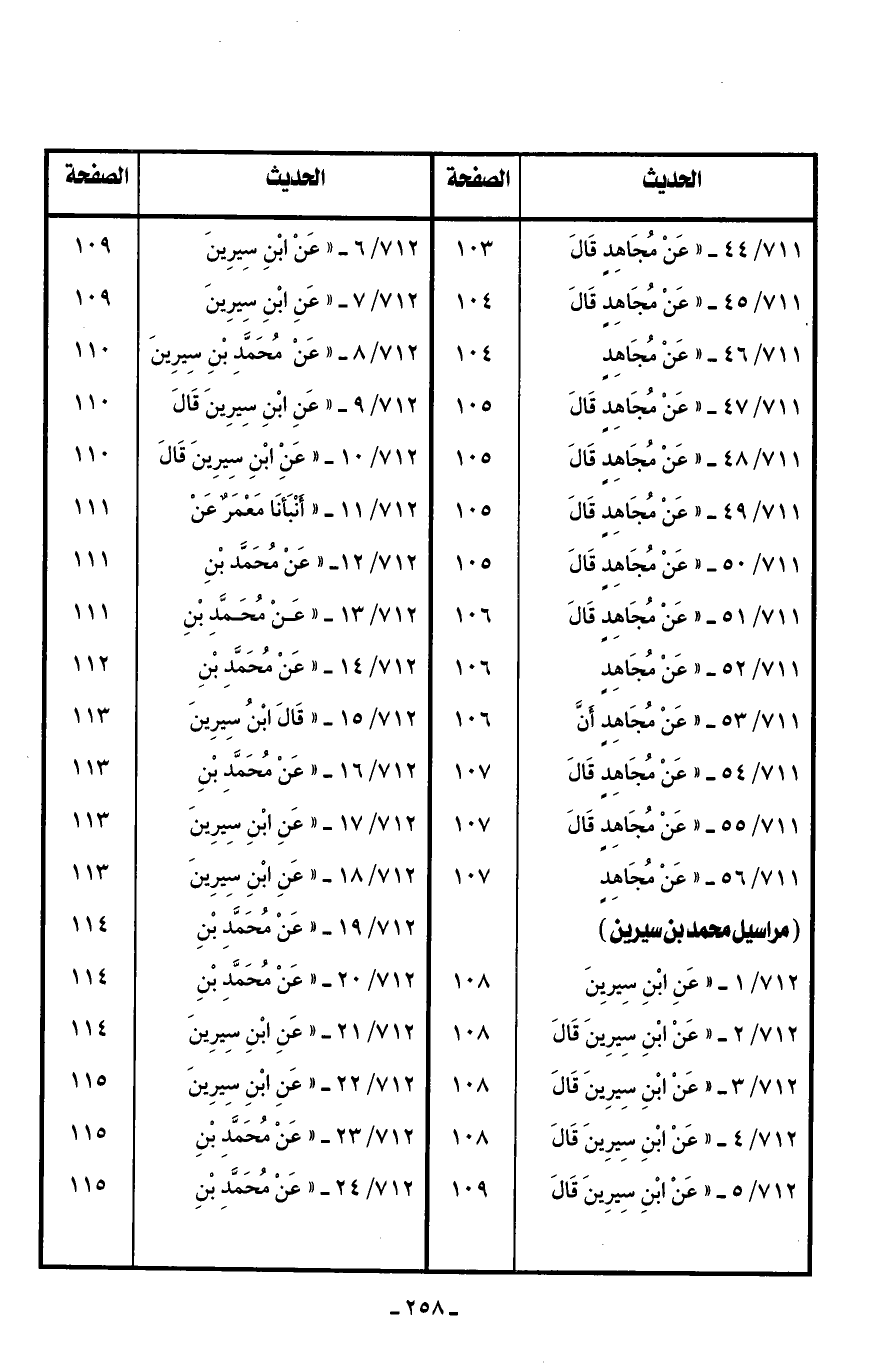 الحديث الصفحة الحديث الصفحة
٤٤/٧١١ ـ « عَنْ مُجَاهِدٍ قَالَ ١٠٣
٤٥/٧١١ ـ « عَنْ مُجَاهِدٍ قَالَ ١٠٤
٤٦/٧١١ ـ « عَنْ مُجَاهِدٍ ١٠٤
٤٧/٧١١ ـ « عَنْ مُجَاهِدٍ قَالَ ١٠٥
٤٨/٧١١ ـ « عَنْ مُجَاهِدٍ قَالَ ١٠٥
٤٩/٧١١ ـ « عَنْ مُجَاهِدٍ قَالَ ١٠٥
٥٠/٧١١ ـ « عَنْ مُجَاهِدٍ قَالَ ١٠٥
٥١/٧١١ ـ « عَنْ مُجَاهِدٍ قَالَ ١٠٦
٥٢/٧١١ ـ « عَنْ مُجَاهِدٍ ١٠٦
٥٣/٧١١ ـ « عَنْ مُجَاهِدٍ أَنَّ ١٠٦
٥٤/٧١١ ـ « عَنْ مُجَاهِدٍ قَالَ ١٠٧
٥٥/٧١١ ـ « عَنْ مُجَاهِدٍ قَالَ ١٠٧
٥٦/٧١١ ـ « عَنْ مُجَاهِدٍ ١٠٧
( مراسيل محمد بن سيرين )
١/٧١٢ ـ « عَنِ ابْنِ سِيرِينَ ١٠٨
٢/٧١٢ ـ « عَنْ ابْنِ سِيرِينَ قَالَ ١٠٨
٣/٧١٢ ـ « عَنْ ابْنِ سِيرِينَ قَالَ ١٠٨
٤/٧١٢ ـ « عَنْ ابْنِ سِيرِينَ قَالَ ١٠٨
٥/٧١٢ ـ « عَنْ ابْنِ سِيرِينَ قَالَ ١٠٩
٦/٧١٢ ـ « عَنْ ابْنِ سِيرِينَ ١٠٩
٧/٧١٢ ـ « عَنِ ابْنِ سِيرِينَ ١٠٩
٨/٧١٢ ـ « عَنْ مُحَمَّدِ بْنِ سِيرِينَ ١١٠
٩/٧١٢ ـ « عَنِ ابْنِ سِيرِينَ قَالَ ١١٠
١٠/٧١٢ ـ « عَنْ ابْنِ سِيرِينَ قَالَ ١١٠
١١/٧١٢ ـ « أَنْبَأَنَا مَعْمَرٌ عَنْ ١١١
١٢/٧١٢ـ « عَنْ مُحَمَّدِ بْنِ ١١١
١٣/٧١٢ ـ « عَـنْ مُحَـمَّدِ بْنِ ١١١
١٤/٧١٢ ـ « عَنْ مُحَمَّدِ بْنِ ١١٢
١٥/٧١٢ ـ « قَالَ ابْنُ سِيرِينَ ١١٣
١٦/٧١٢ ـ « عَنْ مُحَمَّدِ بْنِ ١١٣
١٧/٧١٢ ـ « عَنِ ابْنِ سِيرِينَ ١١٣
١٨/٧١٢ ـ « عَنِ ابْنِ سِيرِينَ ١١٣
١٩/٧١٢ ـ « عَنْ مُحَمَّدِ بْنِ ١١٤
٢٠/٧١٢ ـ « عَنْ مُحَمَّدِ بْنِ ١١٤
٢١/٧١٢ ـ « عَنِ ابْنِ سِيرِينَ ١١٤
٢٢/٧١٢ ـ « عَنِ ابْنِ سِيرِينَ ١١٥
٢٣/٧١٢ ـ « عَنْ مُحَمَّدِ بْنِ ١١٥
٢٤/٧١٢ ـ « عَنْ مُحَمَّدِ بْنِ ١١٥
ـ ٢٥٨ ـ